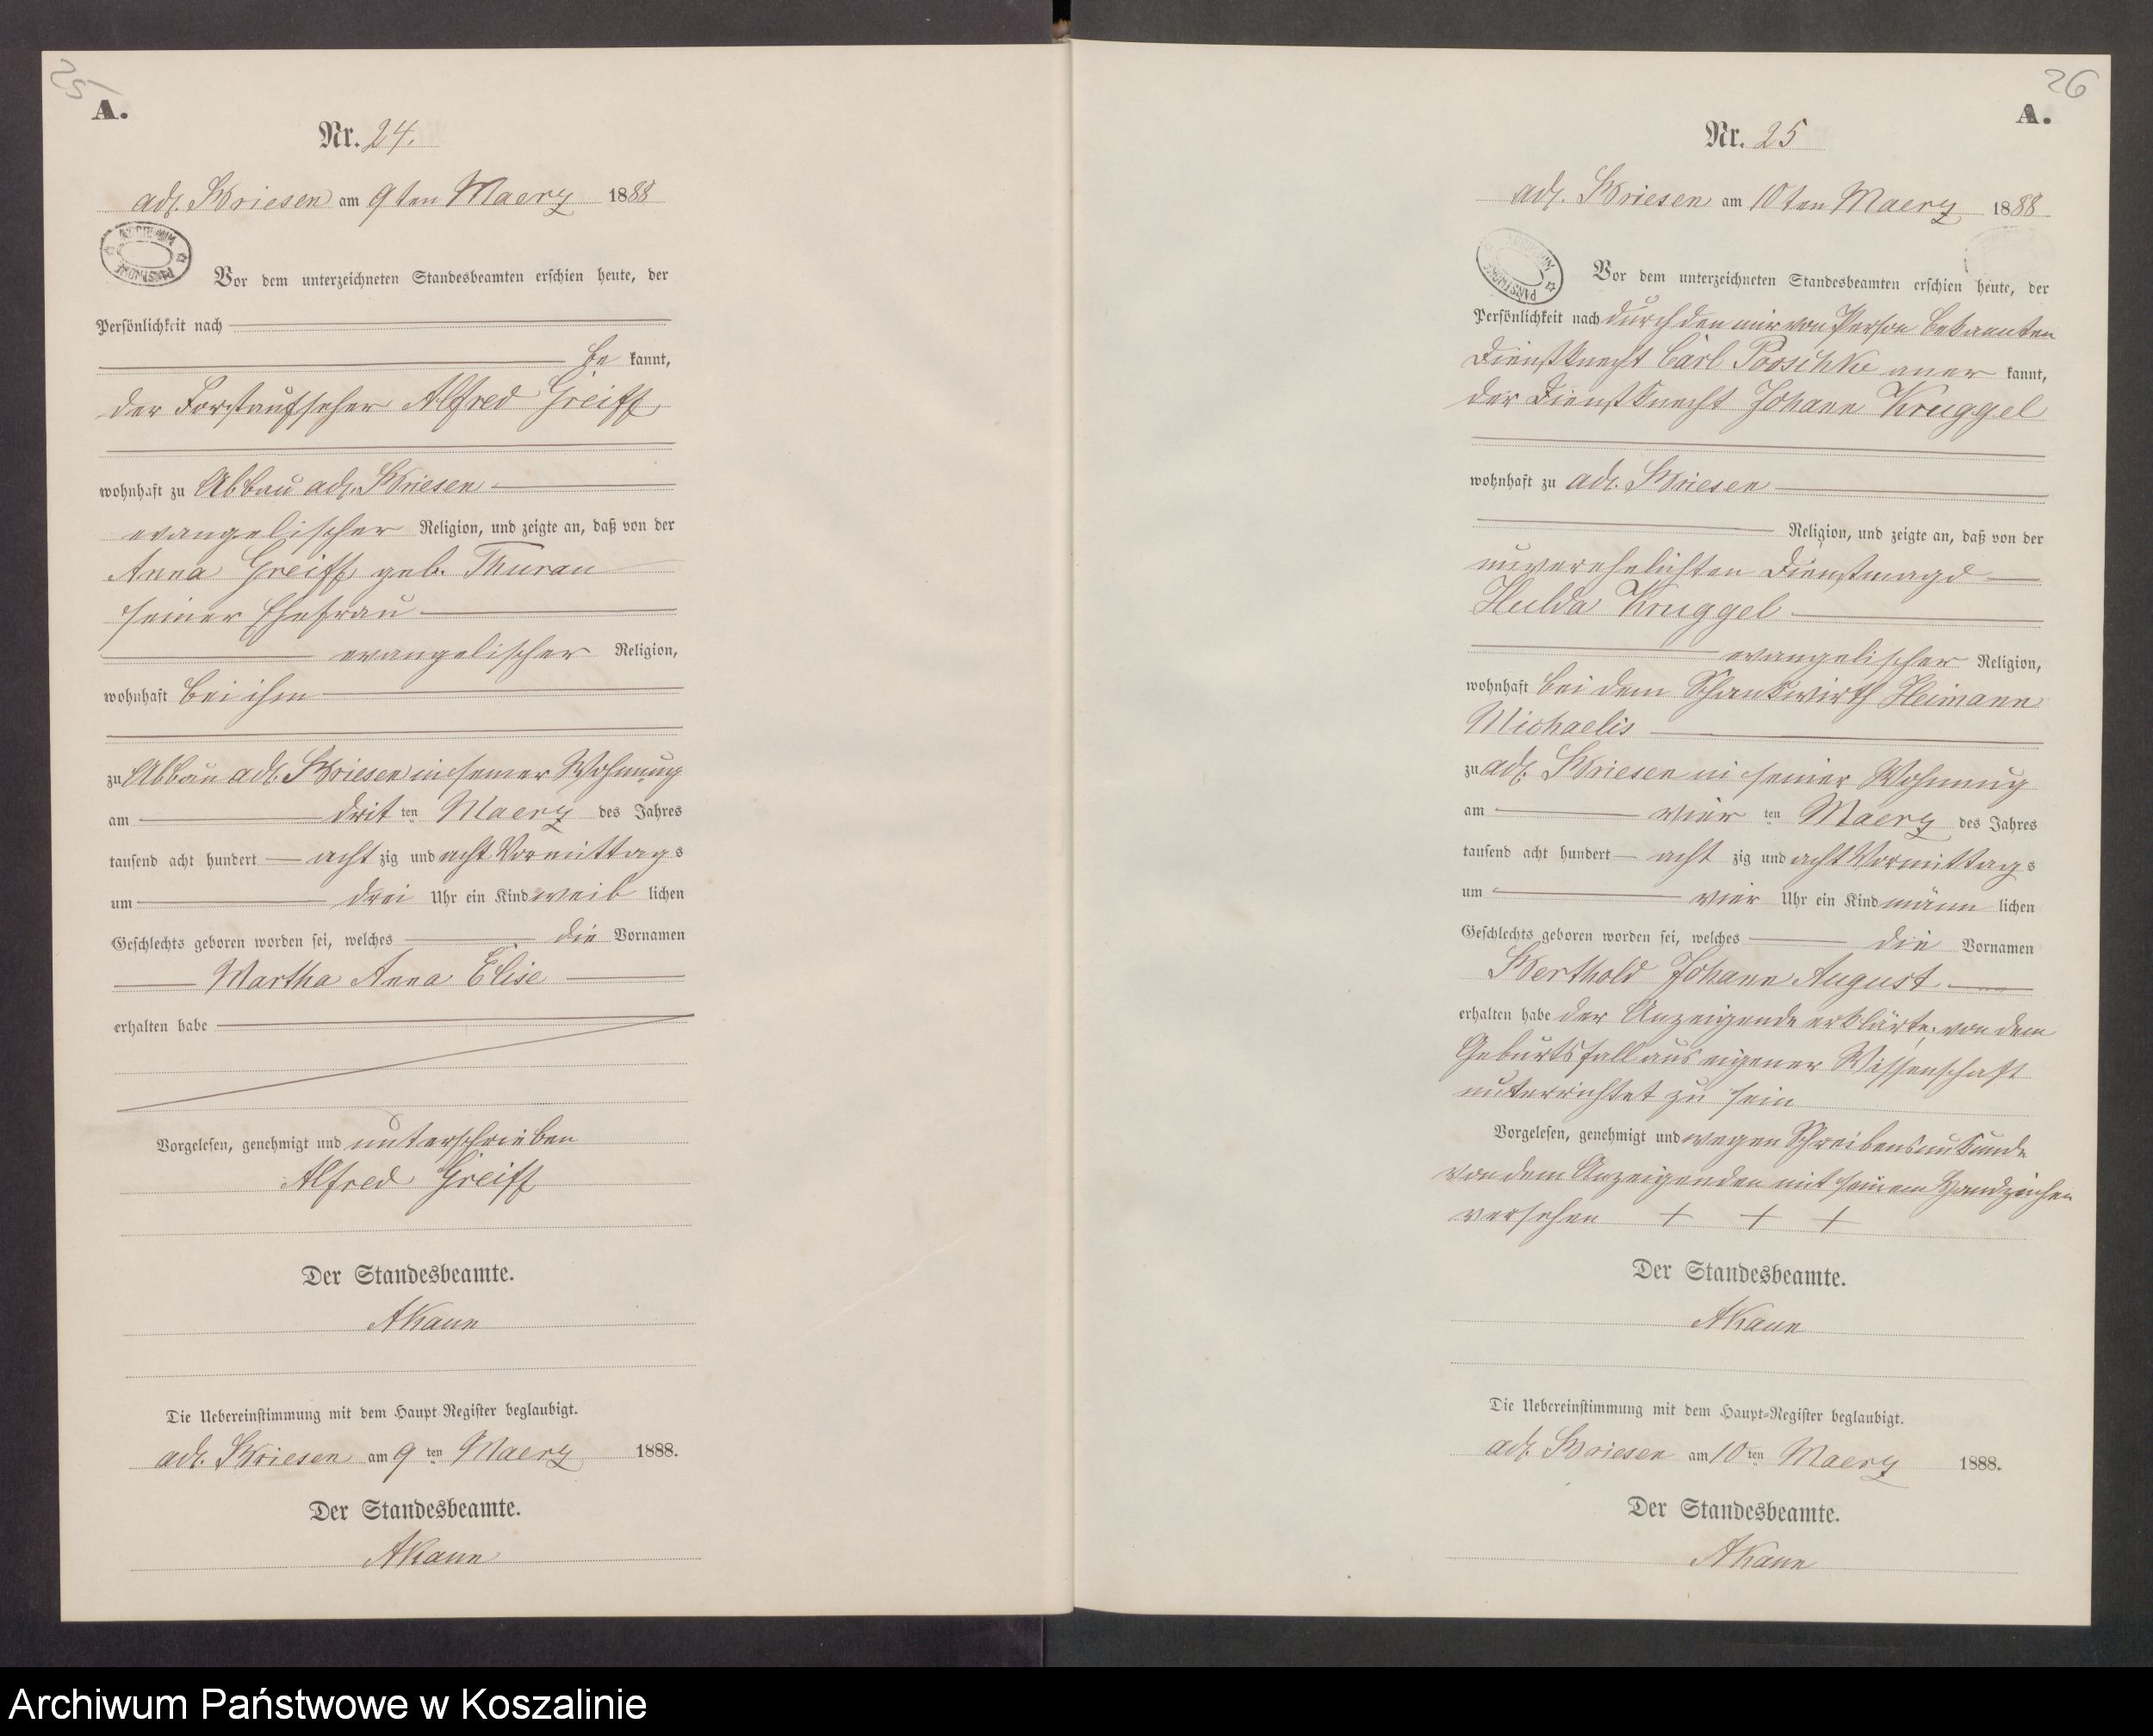 25
A.
Nr. 24.
adl. Briesen am 9ten Maerz 1888
Vor dem unterzeichneten Standesbeamten erschien heute, der
Persönlichkeit nach
be kannt,
der Forstaufseher Alfred Greiff
wohnhaft zu Abbau adl. Briesen
evangelischer Religion, und zeigte an, daß von der
Anna Greiff geb. Thurau
seiner Ehefrau
evangelischer Religion,
wohnhaft bei ihm
zu Abbau adl. Briesen in seiner Wohnung
am drit ten Maerz des Jahres
tausend acht hundert acht zig und acht Vormittags
um drei Uhr ein Kind weib lichen
Geschlechts geboren worden sei, welches die Vornamen
Martha Anna Elise
erhalten habe
Vorgelesen, genehmigt und unterschrieben
Alfred Greiff
Der Standesbeamte.
AKaun
Die Uebereinstimmung mit dem Haupt Register beglaubigt.
adl. Briesen am 9 ten Maerz 1888.
Der Standesbeamte.
AKaun
26
A.
Nr. 25
adl. Briesen am 10ten Maerz 1888
Vor dem unterzeichneten Standesbeamten erschien heute, der
Persönlichkeit nach durch den mir von Person bekannten
Dienstknecht Carl Pooschke aner kannt,
der Dienstknecht Johann Kruggel
wohnhaft zu adl. Briesen
Religion, und zeigte an, daß von der
unverehelichten Dienstmagd
Hulda Kruggel
evangelischer Religion,
wohnhaft bei dem Schankwirth Heimann
Michaelis
zu adl. Briesen in seiner Wohnung
am vier ten Maerz des Jahres
tausend acht hundert acht zig und acht Vormittags
um vier Uhr ein Kind männ lichen
Geschlechts geboren worden sei, welches die Vornamen
Berthold Johann August
erhalten habe der Anzeigende erklärte, von dem
Geburtsfall aus eigener Wissenschaft
unterrichtet zu sein
Vorgelesen, genehmigt und wegen Schreibensunkunde
von dem Anzeigenden mit seinem Handzeichen
versehen + + +
Der Standesbeamte.
AKaun
Die Uebereinstimmung mit dem Haupt-Register beglaubigt.
adl. Briesen am 10 ten Maerz 1888.
Der Standesbeamte.
AKaun
Archiwum Państwowe w Koszalinie